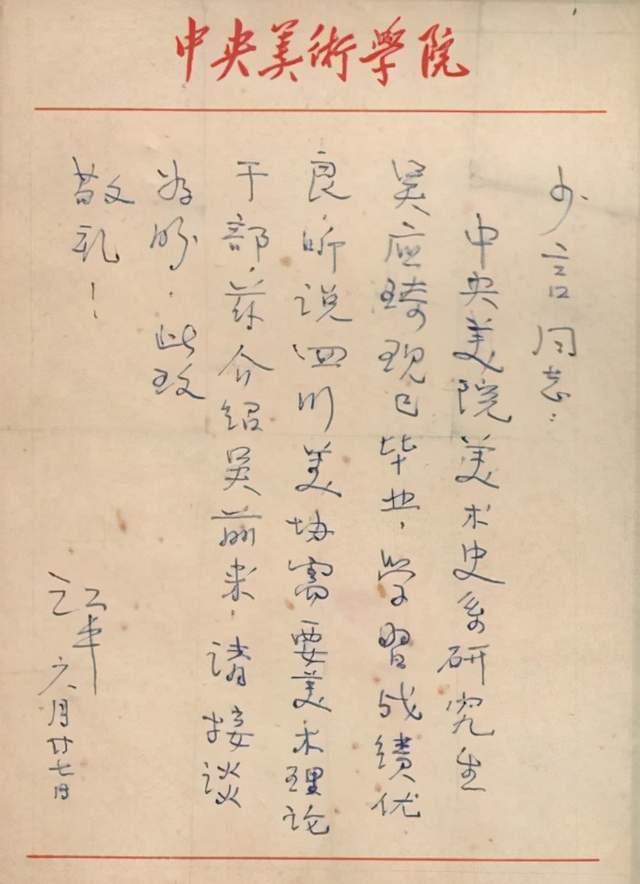 中央美術學院
少言同志：
中央美院美术史系研究生
吴应琦现已毕业，学习成绩优
良，听说四川美协需要美术理论
干部，兹介绍吴前来，请接谈
为盼．此致
敬礼！
江丰
六月廿七日